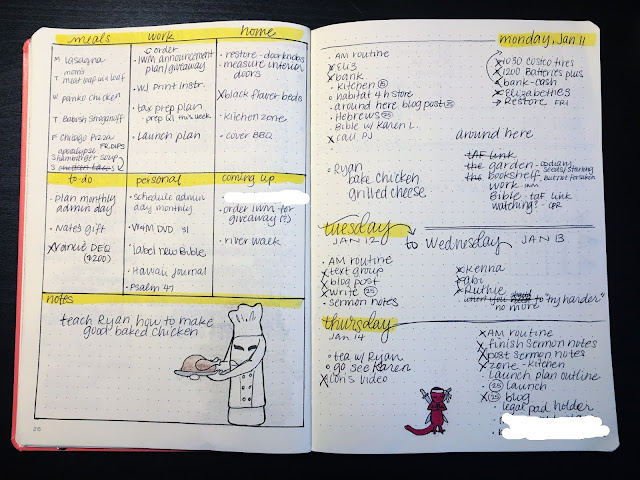 meals
M Lasagna
mom's
T meat loaf in a loaf
W panko chicken
T Babish Stroganoff
F Chicago Pizza
apocalypse FR.DIPS
S hamburger soup
S chicken
work
order
IWM announcement
plan/giveaway
W/ print instr.
tax prep plan
prep w/ this week
launch plan
home
restore - doorknobs
measure interior
doors
black flower beds
kitchen zone
cover BBQ
to do
plan monthly
admin day
Nate's gift
DEQ
($200)
personal
schedule admin
day monthly
VMM DVD 31
label new Bible
Hawaii journal
psalm 47
coming up
order IWM for
giveaway (?)
river walk
notes
teach Ryan how to make
good baked chicken
26
monday, Jan 11
AM routine
Eli 3
bank
kitchen 25
habitat 4 h store
around here blog post 25
Hebrews 25
Bible w/ Karen L.
call PJ
Ryan
bake chicken
grilled cheese
1030 Costco tires
1200 Batteries plus
bank - cash
Elizabeth 3
Restore FRI
around here
TAF link
the garden - seeds/starting
the bookshelf - but not forsaken
work IWM
Bible - TAF link
watching? - GBR
tuesday
JAN 12
AM routine
text group
blog post
write 25
sermon notes
Wednesday JAN 13
Kenna
Abi
Ruthie
when you need to "try harder"
no more
thursday
Jan 14
tea w/ Ryan
go see Karen
Con's video
AM routine
finish sermon notes
post sermon notes
zone - kitchen
launch plan outline
25 launch
25 blog
legal pad holder